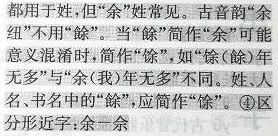 都用于姓,但“余”姓常见。古音韵“余
纽”不用“餘”。当“餘”简作“余”可能
意义混淆时,简作“馀”,如“馀(餘)年
无多”与“余(我)年无多”不同。姓、人
名、书名中的“餘”,应简作“馀”。④区
分形近字:余—佘